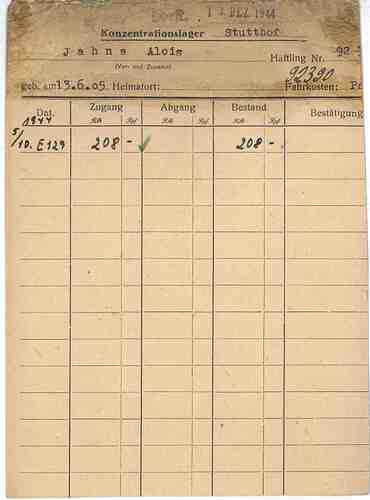 1 DEZ 1944
Konzentrationslager Stutthof
Jahns Alois
(Vor- und Zuname)
Häftling Nr. 92
92390
geb. am 15.6.05 Heimatort: Fahrkosten:
Dat. Zugang Abgang Bestand Bestätigung
1944 RM Rpf RM Rpf RM Rpf
5/10. E129 208 - 208 -